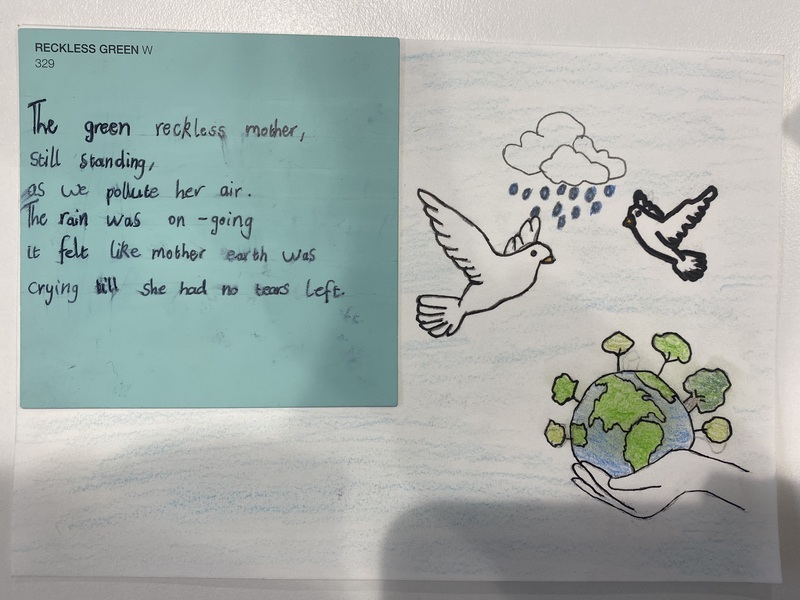 RECKLESS GREEN W
329
The green reckless mother,
Still standing,
as we pollute her air.
The rain was on-going
it felt like mother earth was
crying till she had no tears left.